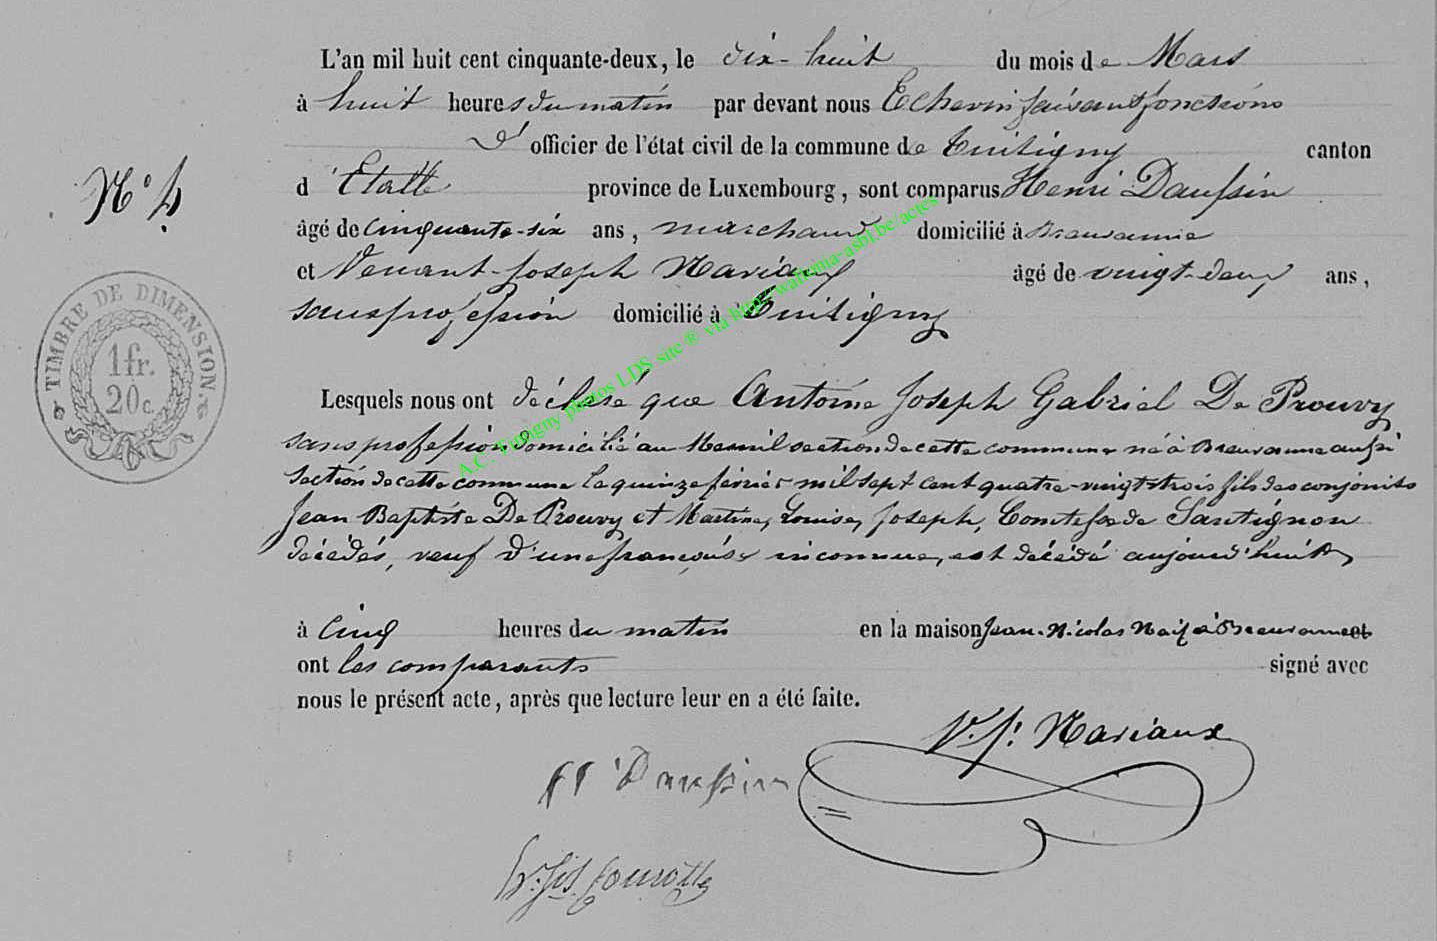 L'an mil huit cent cinquante-deux, le dix-huit du mois de Mars
à huit heures du matin par devant nous Echevin faisant fonctions
d' officier de l'état civil de la commune de Tintigny canton
d'Etalle province de Luxembourg, sont comparus Henri Daussin
âgé de cinquante-six ans, marchand domicilié à Breuvanne
et Venant-Joseph Mariaux âgé de vingt-deux ans,
sans profession domicilié à Tintigny
N° 4
TIMBRE DE DIMENSION.
1 fr.
20 c.
Lesquels nous ont déclaré que Antoine Joseph Gabriel De Prouvy
sans profession domicilié au Mesnil section de cette commune né à Breuvanne aussi
section de cette commune le quinze février mil sept cent quatre-vingt-trois fils des conjoints
Jean Baptiste De Prouvy et Martine, Louise, Joseph, Comtesse de Santignon
décédés, veuf d'une françoise inconnue, est décédé aujourd'hui
à cinq heures du matin en la maison Jean-Nicolas à Breuvanne et
ont les comparants signé avec
nous le présent acte, après que lecture leur en a été faite.
V. J. Mariaux
H Daussin
A.C. Tintigny photos LDS site ® via http://walloma-asbl.be/actes